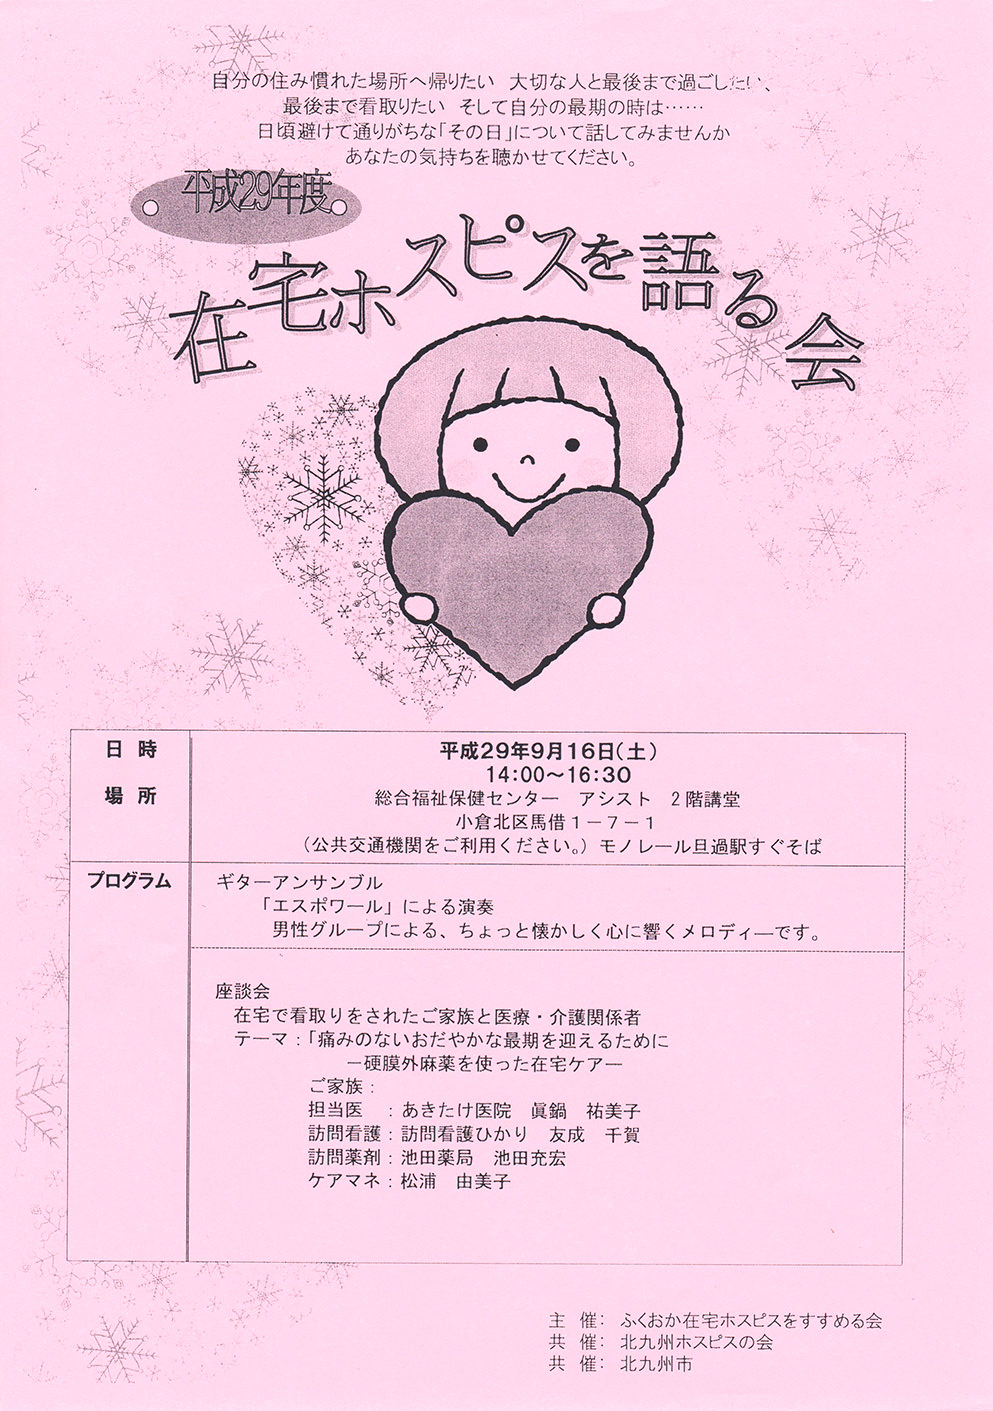 自分の住み慣れた場所へ帰りたい 大切な人と最後まで過ごしたい、
最後まで看取りたい そして自分の最期の時は……
日頃避けて通りがちな「その日」について話してみませんか
あなたの気持ちを聴かせてください。
平成29年度
在宅ホスピスを語る会
日 時
平成29年9月16日(土)
14:00～16:30
場 所
総合福祉保健センター アシスト 2階講堂
小倉北区馬借1－7－1
(公共交通機関をご利用ください。) モノレール旦過駅すぐそば
プログラム
ギターアンサンブル
「エスポワール」による演奏
男性グループによる、ちょっと懐かしく心に響くメロディ―です。
座談会
在宅で看取りをされたご家族と医療・介護関係者
テーマ：「痛みのないおだやかな最期を迎えるために
－硬膜外麻薬を使った在宅ケアー
ご家族：
担当医 ：あきたけ医院 眞鍋 祐美子
訪問看護：訪問看護ひかり 友成 千賀
訪問薬剤：池田薬局 池田充宏
ケアマネ：松浦 由美子
主 催： ふくおか在宅ホスピスをすすめる会
共 催： 北九州ホスピスの会
共 催： 北九州市